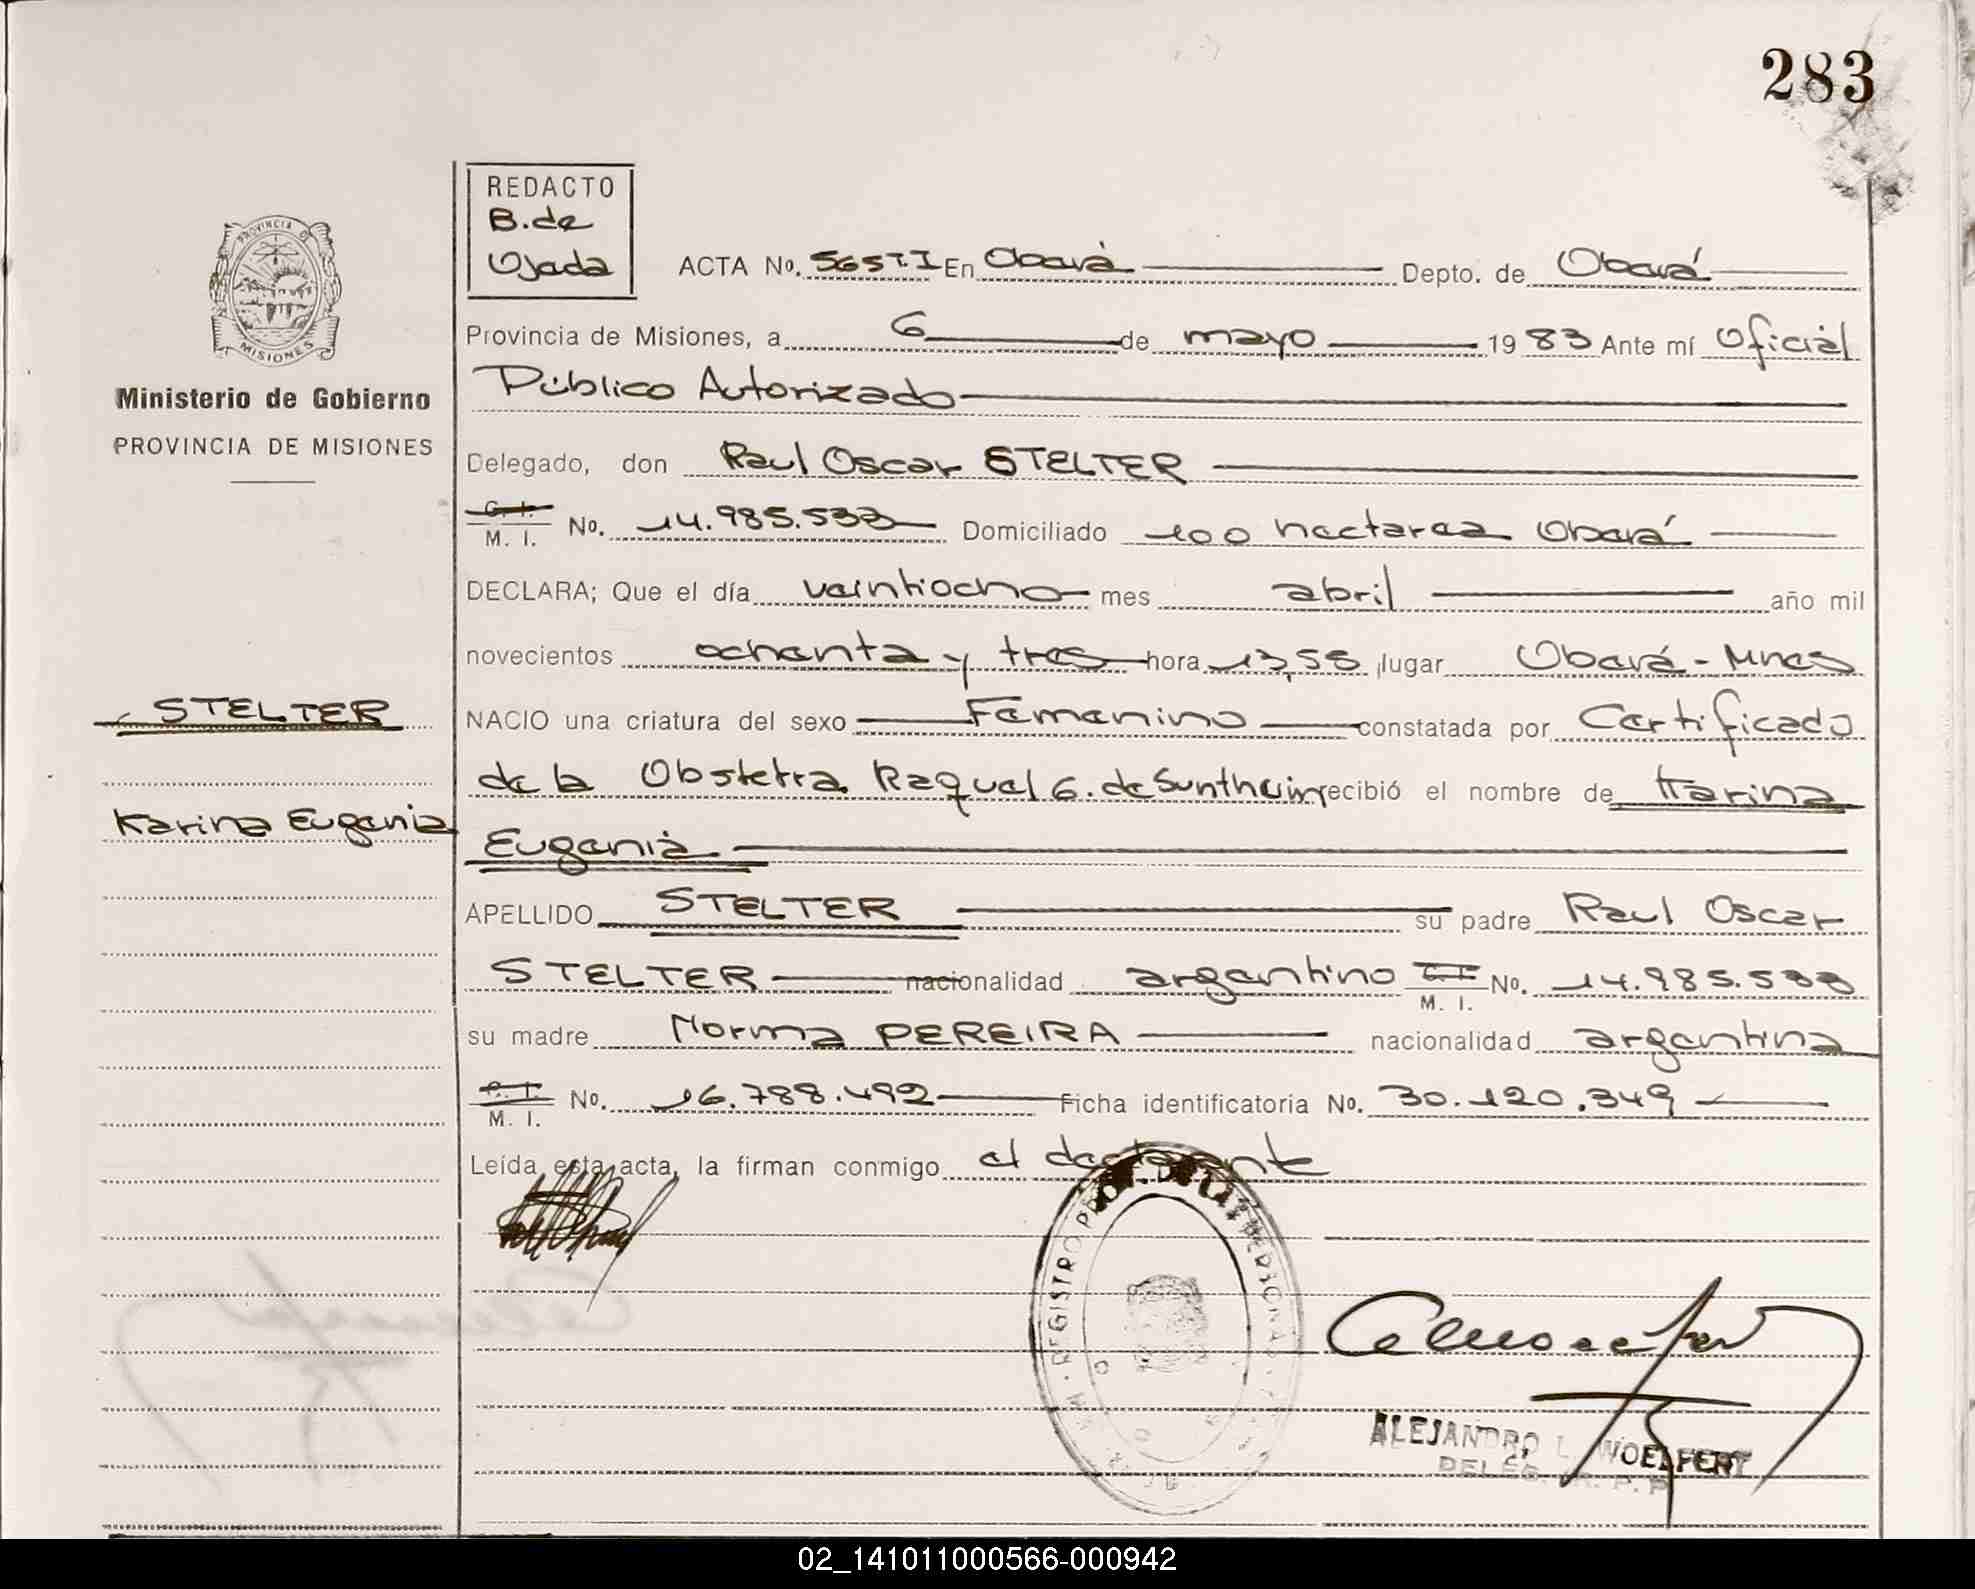 283
REDACTO
B. de
Ojeda
PROVINCIA D
MISIONES
Ministerio de Gobierno
PROVINCIA DE MISIONES
ACTA No. 565T.I En Oberá Depto. de Oberá
Provincia de Misiones, a 6 de mayo 1983 Ante mí Oficial
Público Autorizado
Delegado, don Raul Oscar STELTER
C. I. M. I. No. 14.985.533 Domiciliado 100 hectareas Oberá
DECLARA; Que el día veintiocho mes abril año mil
novecientos ochenta y tres hora 13,55 lugar Oberá - Mnes
STELTER
NACIO una criatura del sexo Femenino constatada por Certificado
de la Obstetra Raquel G. de Suntheim recibió el nombre de Karina
Karina Eugenia
Eugenia
APELLIDO STELTER su padre Raul Oscar
STELTER nacionalidad argentino C. I. M. I. No. 14.985.533
su madre Norma PEREIRA nacionalidad argentina
C. I. M. I. No. 16.788.492 Ficha identificatoria No. 30.120.349
Leída esta acta, la firman conmigo el declarante
REGISTRO PROV. DE LAS PERSONAS
ALEJANDRO L. WOELFERT
DELEG. R. P. P.
02_141011000566-000942